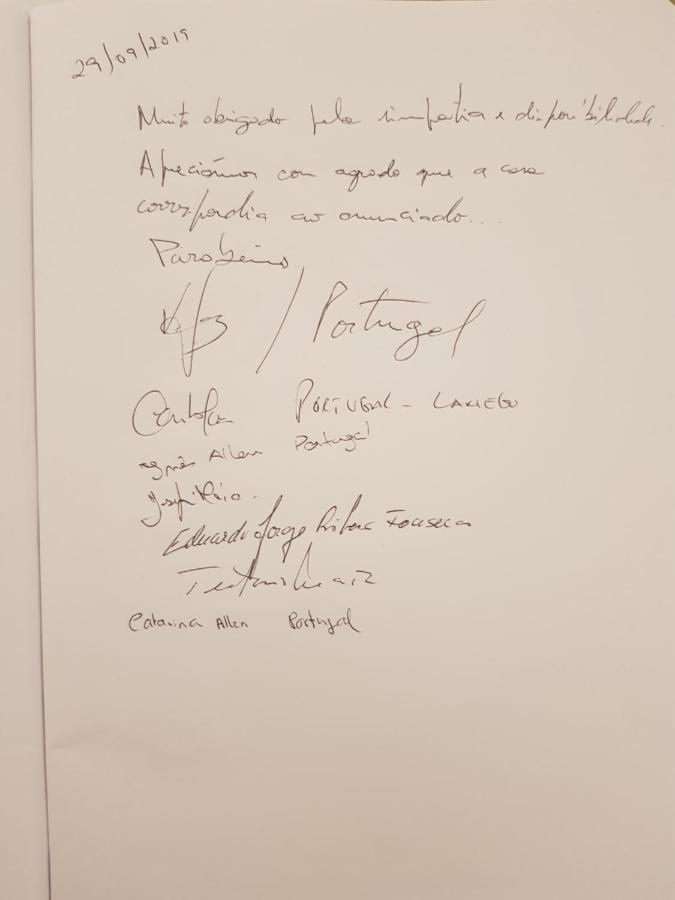 29/09/2019
Muito obrigado pela simpatia e disponibilidade.
Apreciámos com agrado que a casa
correspondia ao anunciado...
Parabéns
/ Portugal
PORTUGAL - LAMEGO
Agnès Allen Portugal
Eduardo Jorge Fonseca
Catarina Allen Portugal